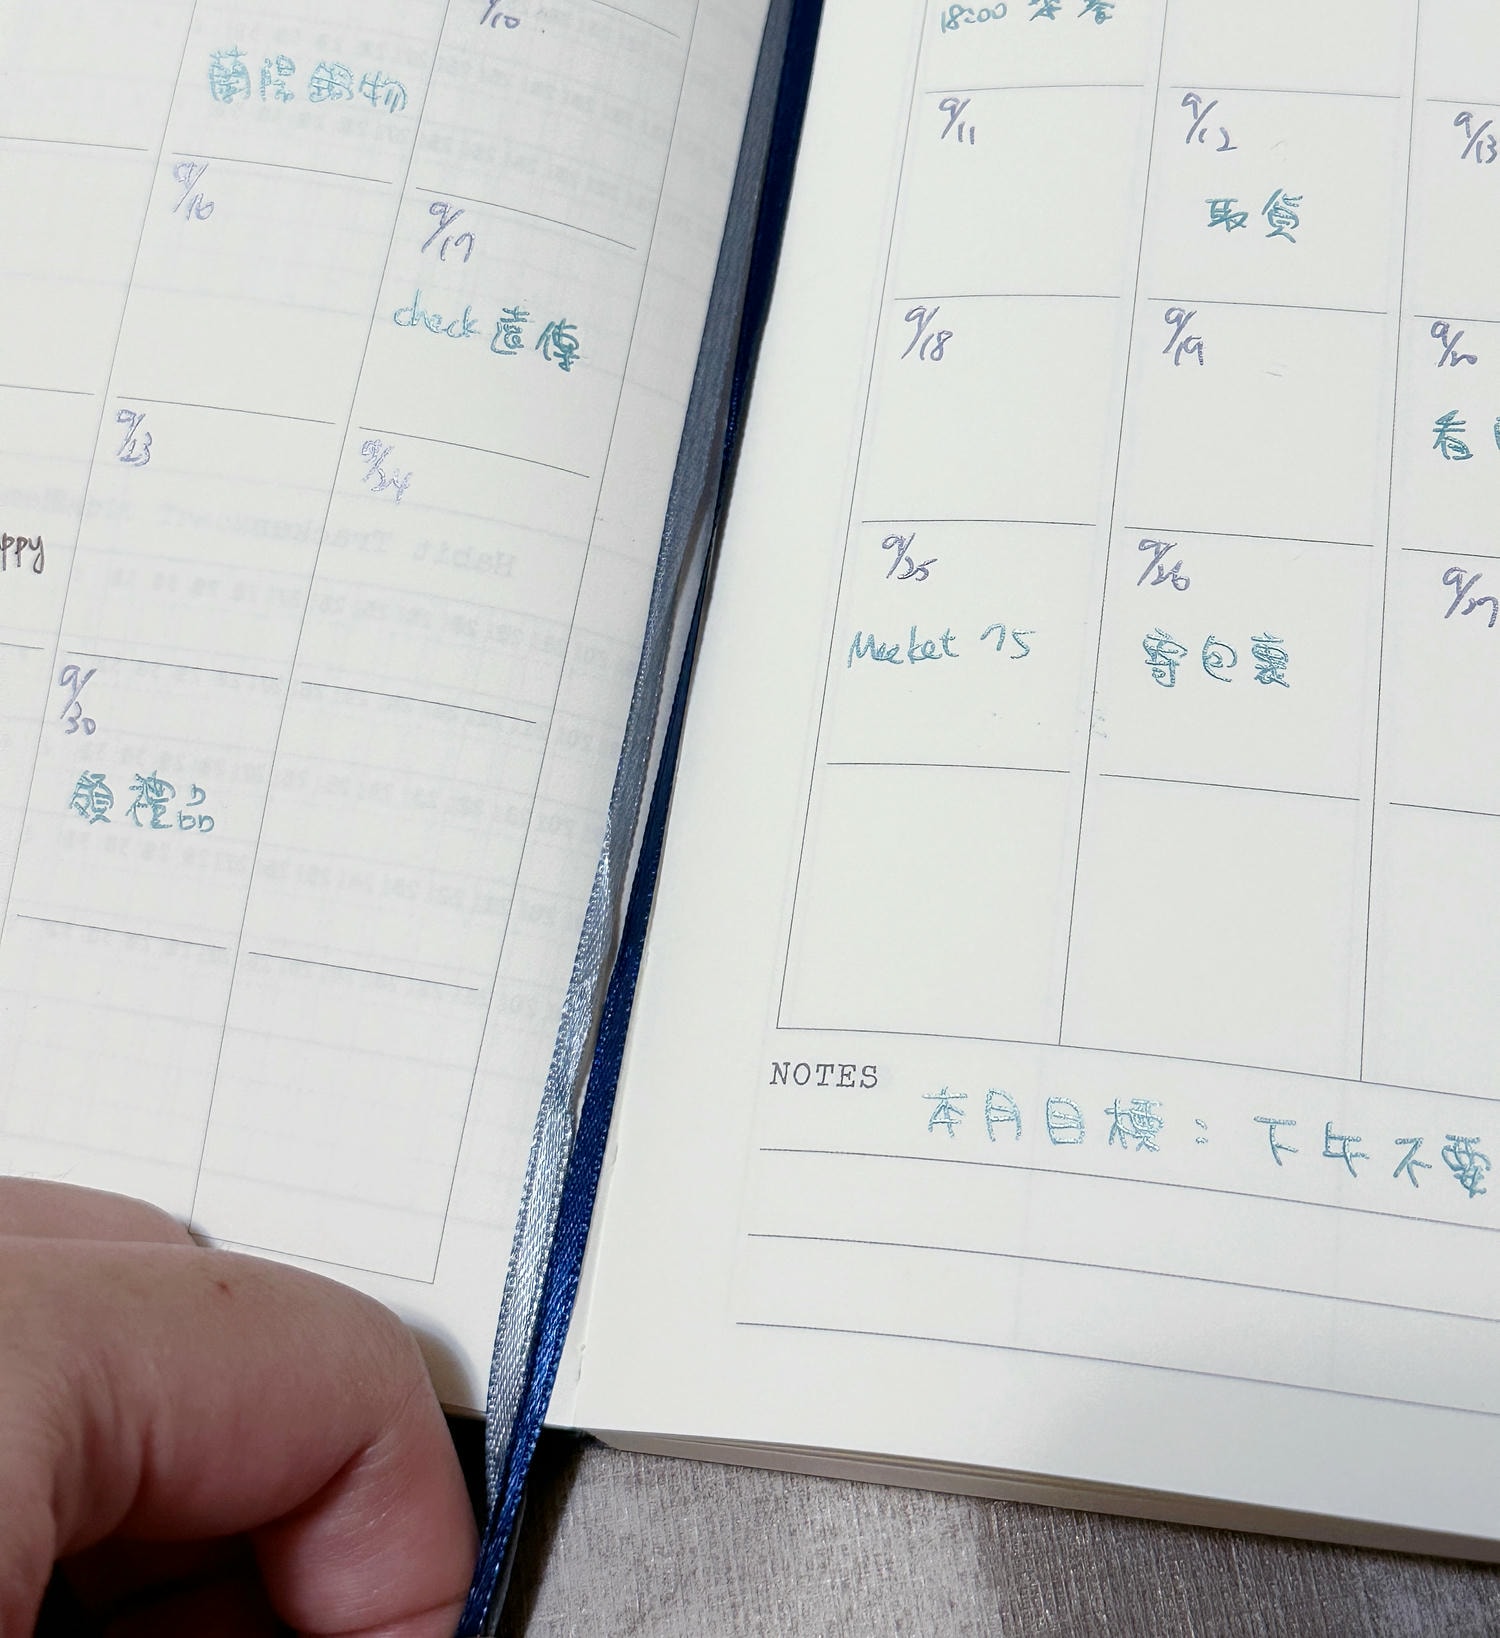 9/10
蘭陽博物
9/16
9/17
check 遠傳
9/23
9/24
ppy
9/30
領禮品
18:00
9/11
9/12
9/13
取貨
9/18
9/19
9/20
看
9/25
9/26
9/27
Market 75
寄包裹
NOTES
本月目標：下午不要